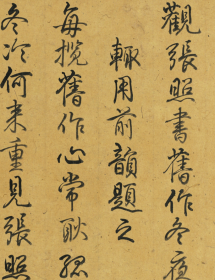 觀張照書舊作冬夜
輙用前韻題之
每攬舊作心常恧
冬冷何來重見張照